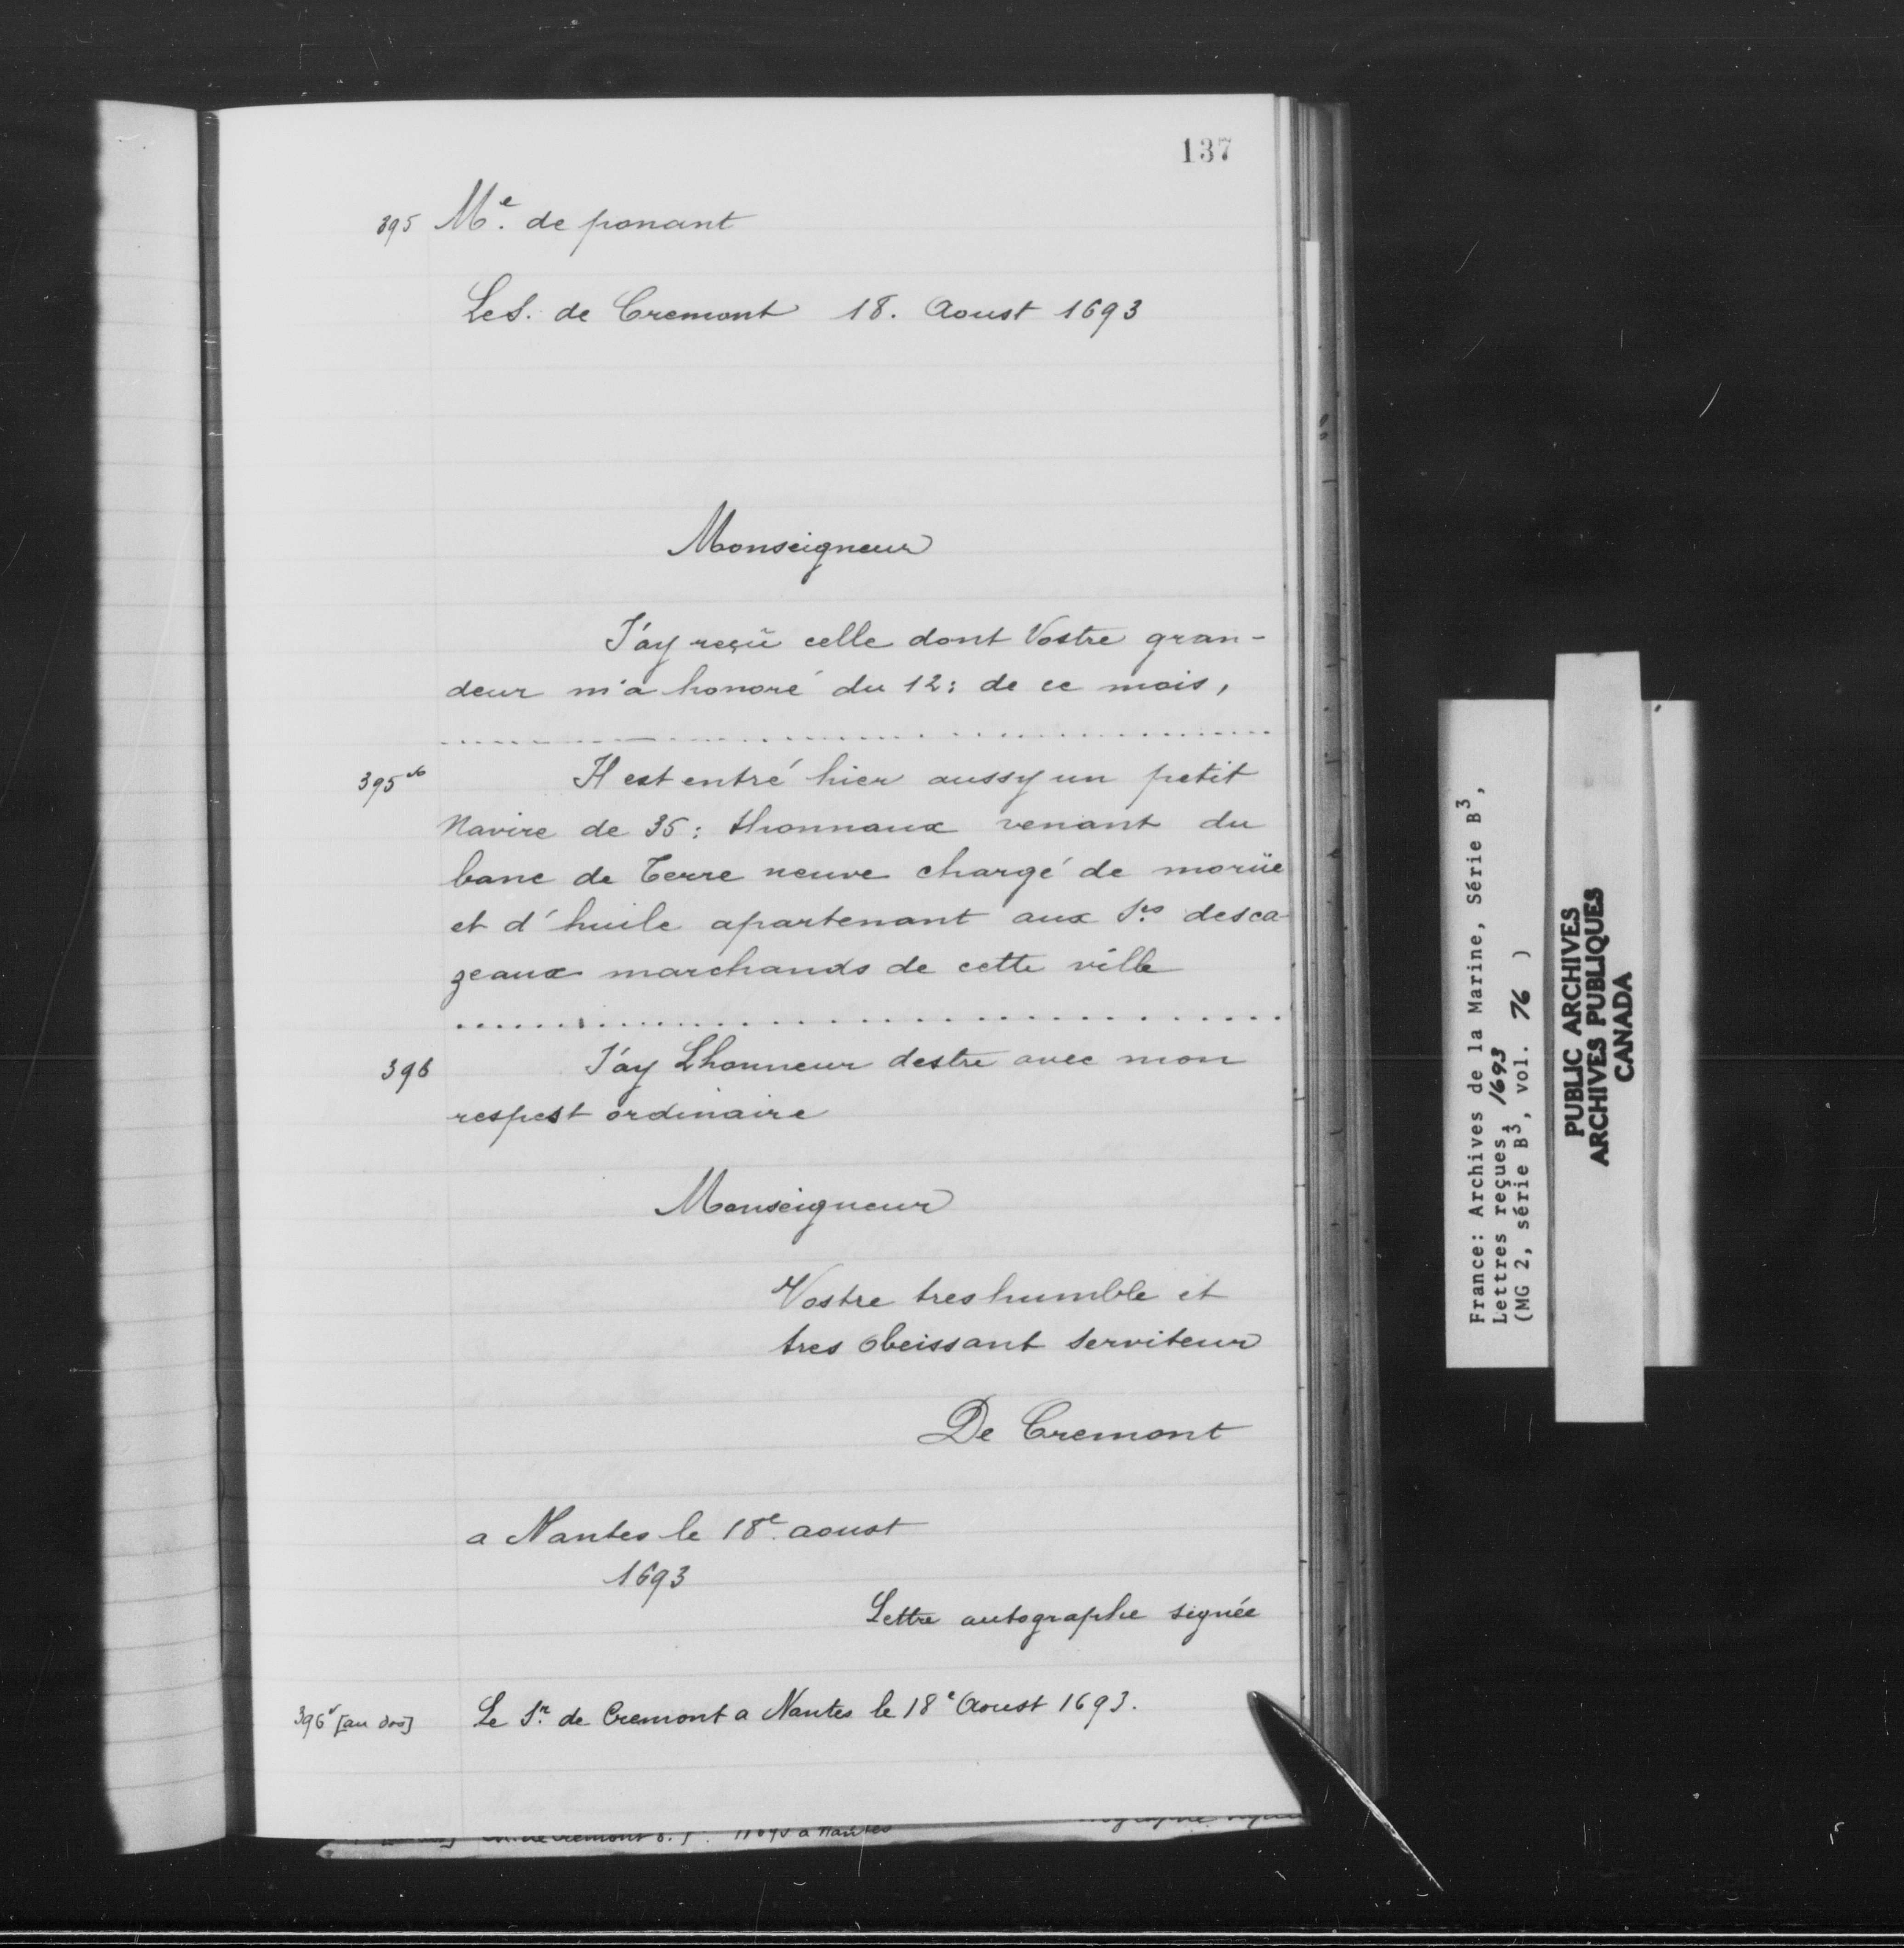 137
395 Mᵉ. de ponant
Le S. de Cremont 18. Aoust 1693
Monseigneur
J'ay reçü celle dont Vostre gran-
deur m'a honoré du 12: de ce mois,
395 vo Il est entré hier aussy un petit
Navire de 35: thonnaux venant du
banc de Terre neuve chargé de morüe
et d'huile apartenant aux S.rs desca-
zeaux marchands de cette ville
396 J'ay Lhonneur destre avec mon
respect ordinaire
Monseigneur
Vostre tres humble et
tres obeissant serviteur
De Cremont
a Nantes le 18e. aoust
1693
Lettre autographe signée
396v [au dos] Le S.r de Cremont a Nantes le 18e Aoust 1693.
a Nantes
France: Archives de la Marine, Série B3,
Lettres reçues, 1693
(MG 2, série B3, vol. 76 )
PUBLIC ARCHIVES
ARCHIVES PUBLIQUES
CANADA